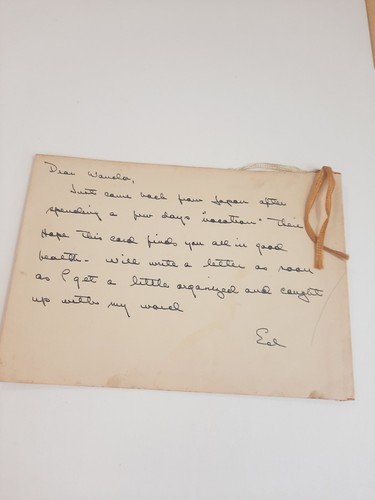 Dear Wanda,
Just came back from Japan after
spending a few days "vacation" there
Hope this card finds you all in good
health - will write a letter as soon
as I get a little organized and caught
up with my word
Ed